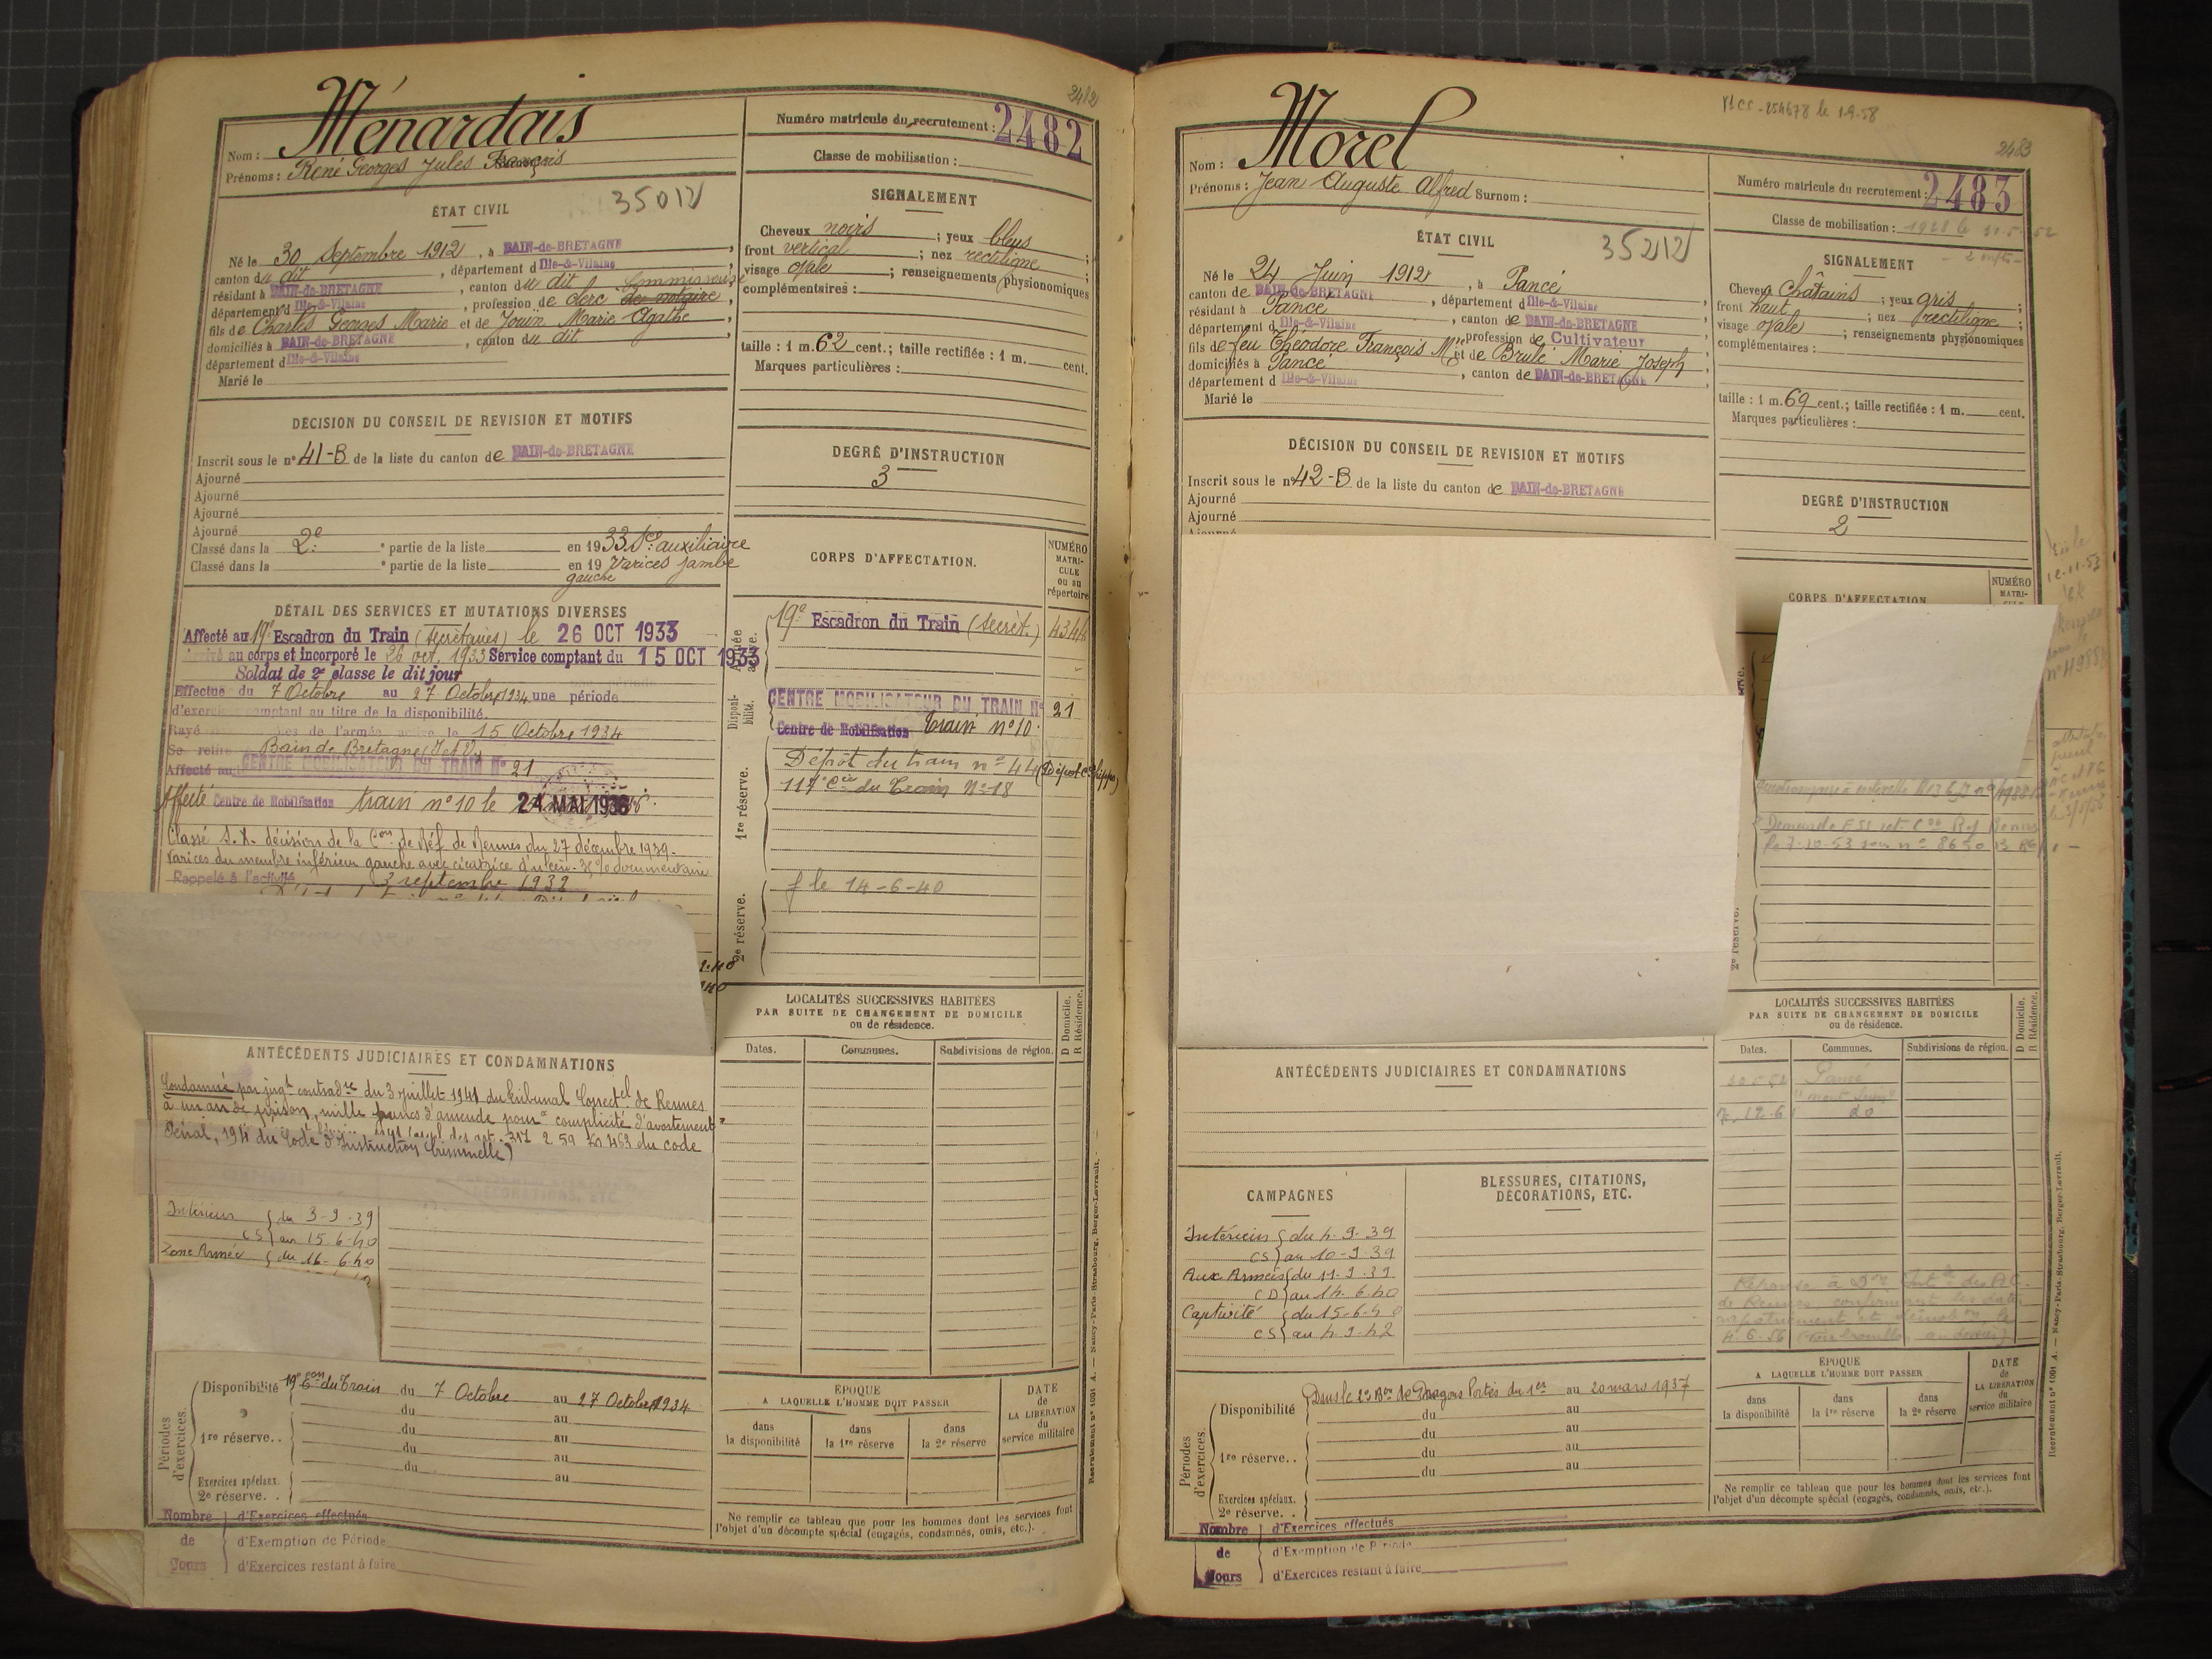 2482
Ménardais
Nom :
Prénoms : René Georges Jules François
Numéro matricule du recrutement : 2482
Classe de mobilisation :
ÉTAT CIVIL
35012
Né le 30 Septembre 1912, à BAIN-de-BRETAGNE,
canton du dit, département d'Ille-&-Vilaine
résidant à BAIN-de-BRETAGNE, canton du dit
département d'Ille-&-Vilaine, profession de clerc de notaire,
fils de Charles Georges Marie et de Jouin Marie Agathe,
domiciliés à BAIN-de-BRETAGNE, canton du dit,
département d'Ille-&-Vilaine
Marié le
SIGNALEMENT
Cheveux noirs ; yeux bleus ;
front vertical ; nez rectiligne ;
visage ovale ; renseignements physionomiques
complémentaires :
taille : 1 m. 62 cent.; taille rectifiée : 1 m. cent.
Marques particulières :
DÉCISION DU CONSEIL DE REVISION ET MOTIFS
Inscrit sous le n° 41-B de la liste du canton de BAIN-de-BRETAGNE
Ajourné
Ajourné
Ajourné
Ajourné
Classé dans la 2e partie de la liste en 1933 Sce auxiliaire
Classé dans la e partie de la liste en 19 Varices jambe
gauche
DEGRÉ D'INSTRUCTION
3
DÉTAIL DES SERVICES ET MUTATIONS DIVERSES
Affecté au 19e Escadron du Train (Secrétaires) le 26 OCT 1933
Arrivé au corps et incorporé le 26 oct. 1933 Service comptant du 15 OCT 1933
Soldat de 2e classe le dit jour
Effectué du 7 Octobre au 27 Octobre 1934 une période
d'exercice comptant au titre de la disponibilité.
Rayé de l'armée active le 15 Octobre 1934
Se retire Bain de Bretagne (I et V)
Affecté au CENTRE MOBILISATEUR DU TRAIN N° 21
Affecté Centre de Mobilisation train n° 10 le 24 MAI 1936
Classé S.X. décision de la Con de Réf. de Rennes du 27 décembre 1939.
Varices du membre inférieur gauche avec cicatrice d'ulcère
Rappelé à l'activité 3 septembre 1939
CORPS D'AFFECTATION.
NUMÉRO
MATRI-
CULE
ou au
répertoire
19e Escadron du Train (Secrét.)
Disponi-
bilité.
CENTRE MOBILISATEUR DU TRAIN N° 21
Centre de Mobilisation Train n° 10.
1re réserve.
Dépôt du train n° 44
117e Cie du Train N° 18
2e réserve.
f le 14-6-40
LOCALITÉS SUCCESSIVES HABITÉES
PAR SUITE DE CHANGEMENT DE DOMICILE
ou de résidence.
Dates. Communes. Subdivisions de région. D Domicile. R Résidence.
ANTÉCÉDENTS JUDICIAIRES ET CONDAMNATIONS
Condamné par jugt contradre du 3 juillet 1941 du Tribunal Correctel de Rennes
à un an de prison, mille francs d'amende pour "complicité d'avortement"
Pénal, 194 du Code d'Instruction Criminelle)
Intérieur du 3-9-39
CS au 15-6-40
Zone Armée du 16-6-40
Périodes d'exercices.
Disponibilité 19e Eon du Train du 7 Octobre au 27 Octobre 1934
du au
1re réserve.. du au
du au
du au
Exercices spéciaux.
2e réserve. .
Nombre d'Exercices effectués
de d'Exemption de Période
Jours d'Exercices restant à faire
ÉPOQUE
A LAQUELLE L'HOMME DOIT PASSER
dans la disponibilité
dans la 1re réserve
dans la 2e réserve
DATE
de
LA LIBÉRATION
du
service militaire
Ne remplir ce tableau que pour les hommes dont les services font
l'objet d'un décompte spécial (engagés, condamnés, omis, etc.).
Recrutement n° 1001 A. — Nancy-Paris-Strasbourg, Berger-Levrault.
2483
Morel
Nom :
Prénoms : Jean Auguste Alfred Surnom :
Numéro matricule du recrutement : 2483
Classe de mobilisation :
ÉTAT CIVIL
35212
Né le 24 Juin 1912, à Pancé
canton de BAIN-de-BRETAGNE, département d'Ille-&-Vilaine
résidant à Pancé, canton de BAIN-de-BRETAGNE
département d Ille-&-Vilaine, profession de Cultivateur
fils de feu Théodore François Mie et de Brulé Marie Joseph,
domiciliés à Pancé, canton de BAIN-de-BRETAGNE,
département d Ille-&-Vilaine
Marié le
SIGNALEMENT
Cheveux Châtains ; yeux gris ;
front haut ; nez rectiligne ;
visage ovale ; renseignements physionomiques
complémentaires :
taille : 1 m. 69 cent.; taille rectifiée : 1 m. cent.
Marques particulières :
DÉCISION DU CONSEIL DE REVISION ET MOTIFS
Inscrit sous le n° 42-B de la liste du canton de BAIN-de-BRETAGNE
Ajourné
Ajourné
DEGRÉ D'INSTRUCTION
2
CORPS D'AFFECTATION
NUMÉRO
MATRI-
LOCALITÉS SUCCESSIVES HABITÉES
PAR SUITE DE CHANGEMENT DE DOMICILE
ou de résidence.
Dates. Communes. Subdivisions de région. D Domicile. R Résidence.
Pancé
ANTÉCÉDENTS JUDICIAIRES ET CONDAMNATIONS
CAMPAGNES
BLESSURES, CITATIONS,
DÉCORATIONS, ETC.
Intérieur du 4-9-39
CS au 10-9-39
Aux Armées du 11-9-39
CD au 14-6-40
Captivité du 15-6-40
CS au 4-9-42
Périodes d'exercices.
Disponibilité Dans le 2e Bon de Dragons Portés du 1er au 20 mars 1937
du au
du au
1re réserve.. du au
du au
Exercices spéciaux.
2e réserve. .
Nombre d'Exercices effectués
de d'Exemption de Période
Jours d'Exercices restant à faire
ÉPOQUE
A LAQUELLE L'HOMME DOIT PASSER
dans la disponibilité
dans la 1re réserve
dans la 2e réserve
DATE
de
LA LIBÉRATION
du
service militaire
Ne remplir ce tableau que pour les hommes dont les services font
l'objet d'un décompte spécial (engagés, condamnés, omis, etc.).
Recrutement n° 1001 A. — Nancy-Paris-Strasbourg, Berger-Levrault.